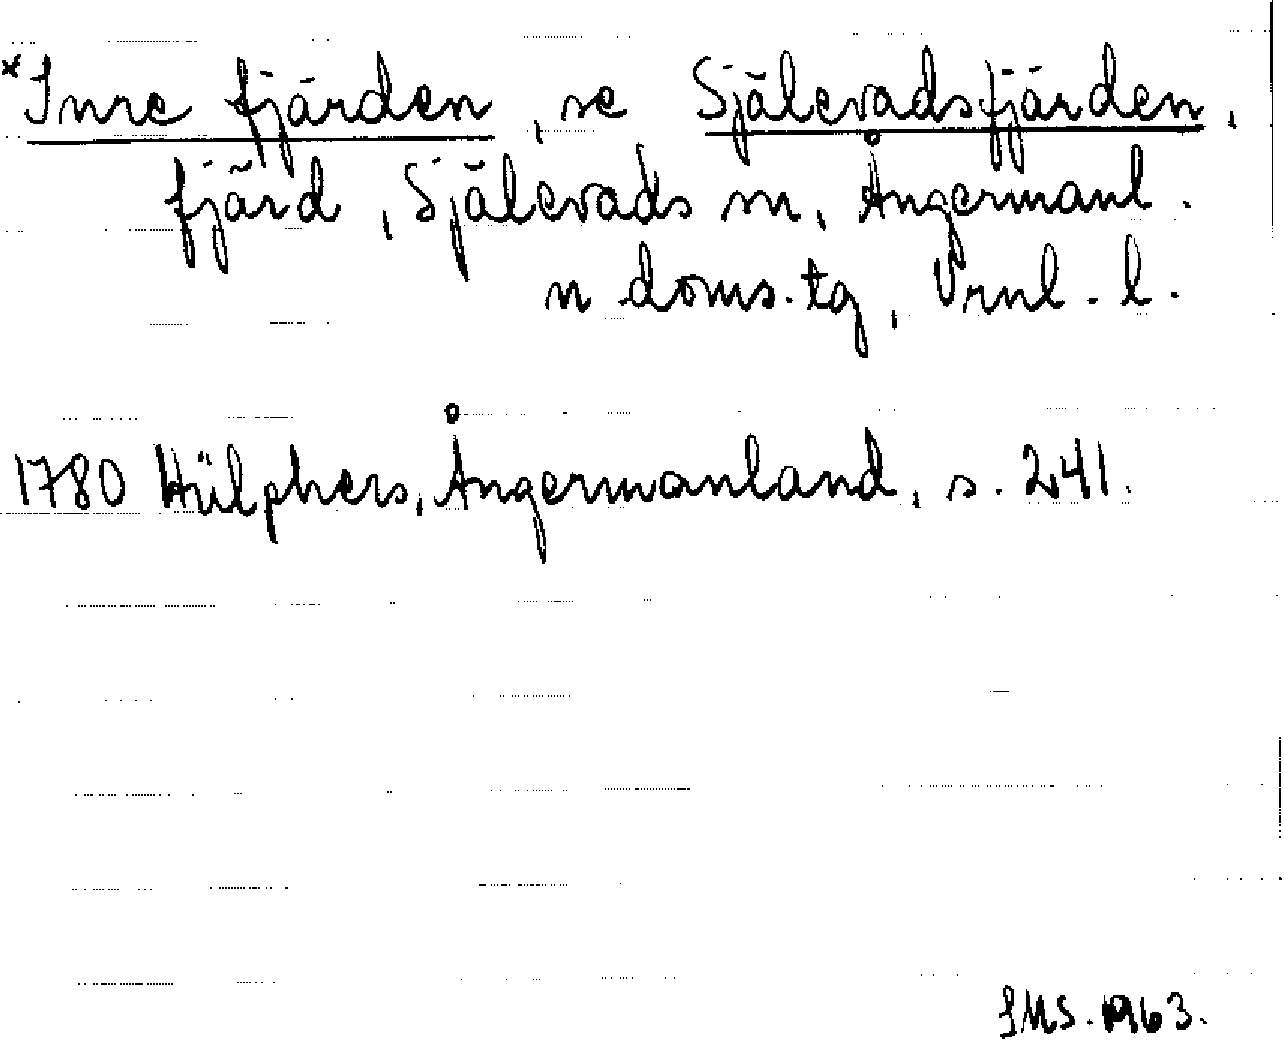 *Inre fjärden, se Själevadsfjärden,
fjärd, Själevads sn, Ångermanl.
n doms.tg, Vrnl. l.
1780 Hülphers, Ångermanland, s. 241.
SMS. 1963.